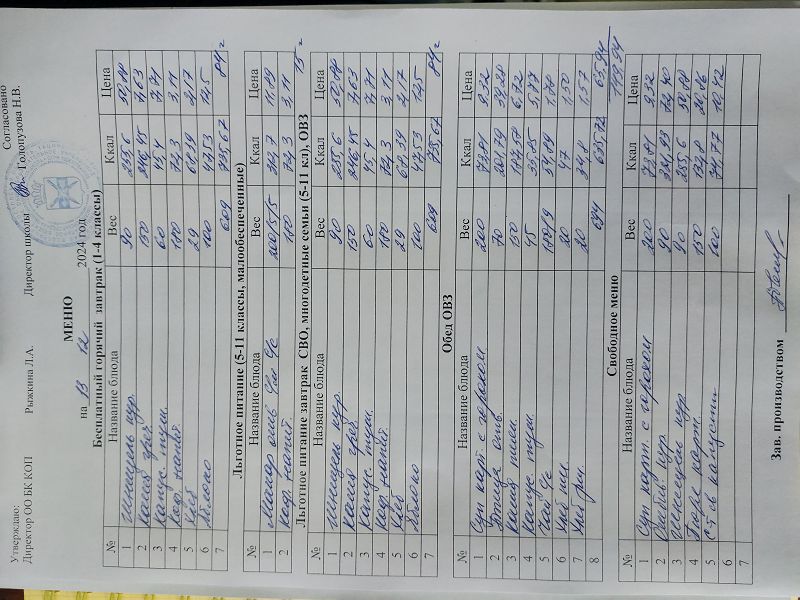 Утверждаю:
Согласовано
Директор ОО БК КОП Рыжкина Л.А. Директор школы Голопузова Н.В.
МЕНЮ
на 13 12 2024 год
Бесплатный горячий завтрак (1-4 классы)
№ Название блюда Вес Ккал Цена
1 Шницель кур. 90 255,6 50,88
2 Каша греч. 150 246,45 7,63
3 Капус. туш. 60 45,4 7,71
4 Коф. напит. 180 74,3 3,11
5 Хлеб 29 68,39 2,17
6 Яблоко 100 47,53 12,5
7 609 735,67 84 г
Льготное питание (5-11 классы, малообеспеченные)
№ Название блюда Вес Ккал Цена
1 Макар отв 200/5/5 11,89
2 Коф. напит. 180 74,3 3,11
15 г
Льготное питание завтрак СВО, многодетные семьи (5-11 кл), ОВЗ
№ Название блюда Вес Ккал Цена
1 Шницель кур. 90 255,6 50,88
2 Каша греч. 150 246,45 7,63
3 Капус. туш. 60 45,4 7,71
4 Коф. напит. 180 74,3 3,11
5 Хлеб 29 68,39 2,17
6 Яблоко 100 47,53 12,5
7 609 735,67 84 г
Обед ОВЗ
№ Название блюда Вес Ккал Цена
1 Суп карт с горохом 200 73,81 9,32
2 Птица отв. 70 201,79
3 Каша 150 6,72
4 Капус туш. 45 5,77
5 Чай 180/9 1,70
6 Хлеб 20 47 1,50
7 Хлеб рж. 20 34,8 1,57
8 694 635,72 65,94
149,94
Свободное меню
№ Название блюда Вес Ккал Цена
1 Суп карт. с горохом 200 73,81 9,32
2 кур 90
3 Шницель кур 90 255,6 50,88
4 Пюре карт. 150 132,8
5 капусты 100 74,77 10,42
6
7
Зав. производством